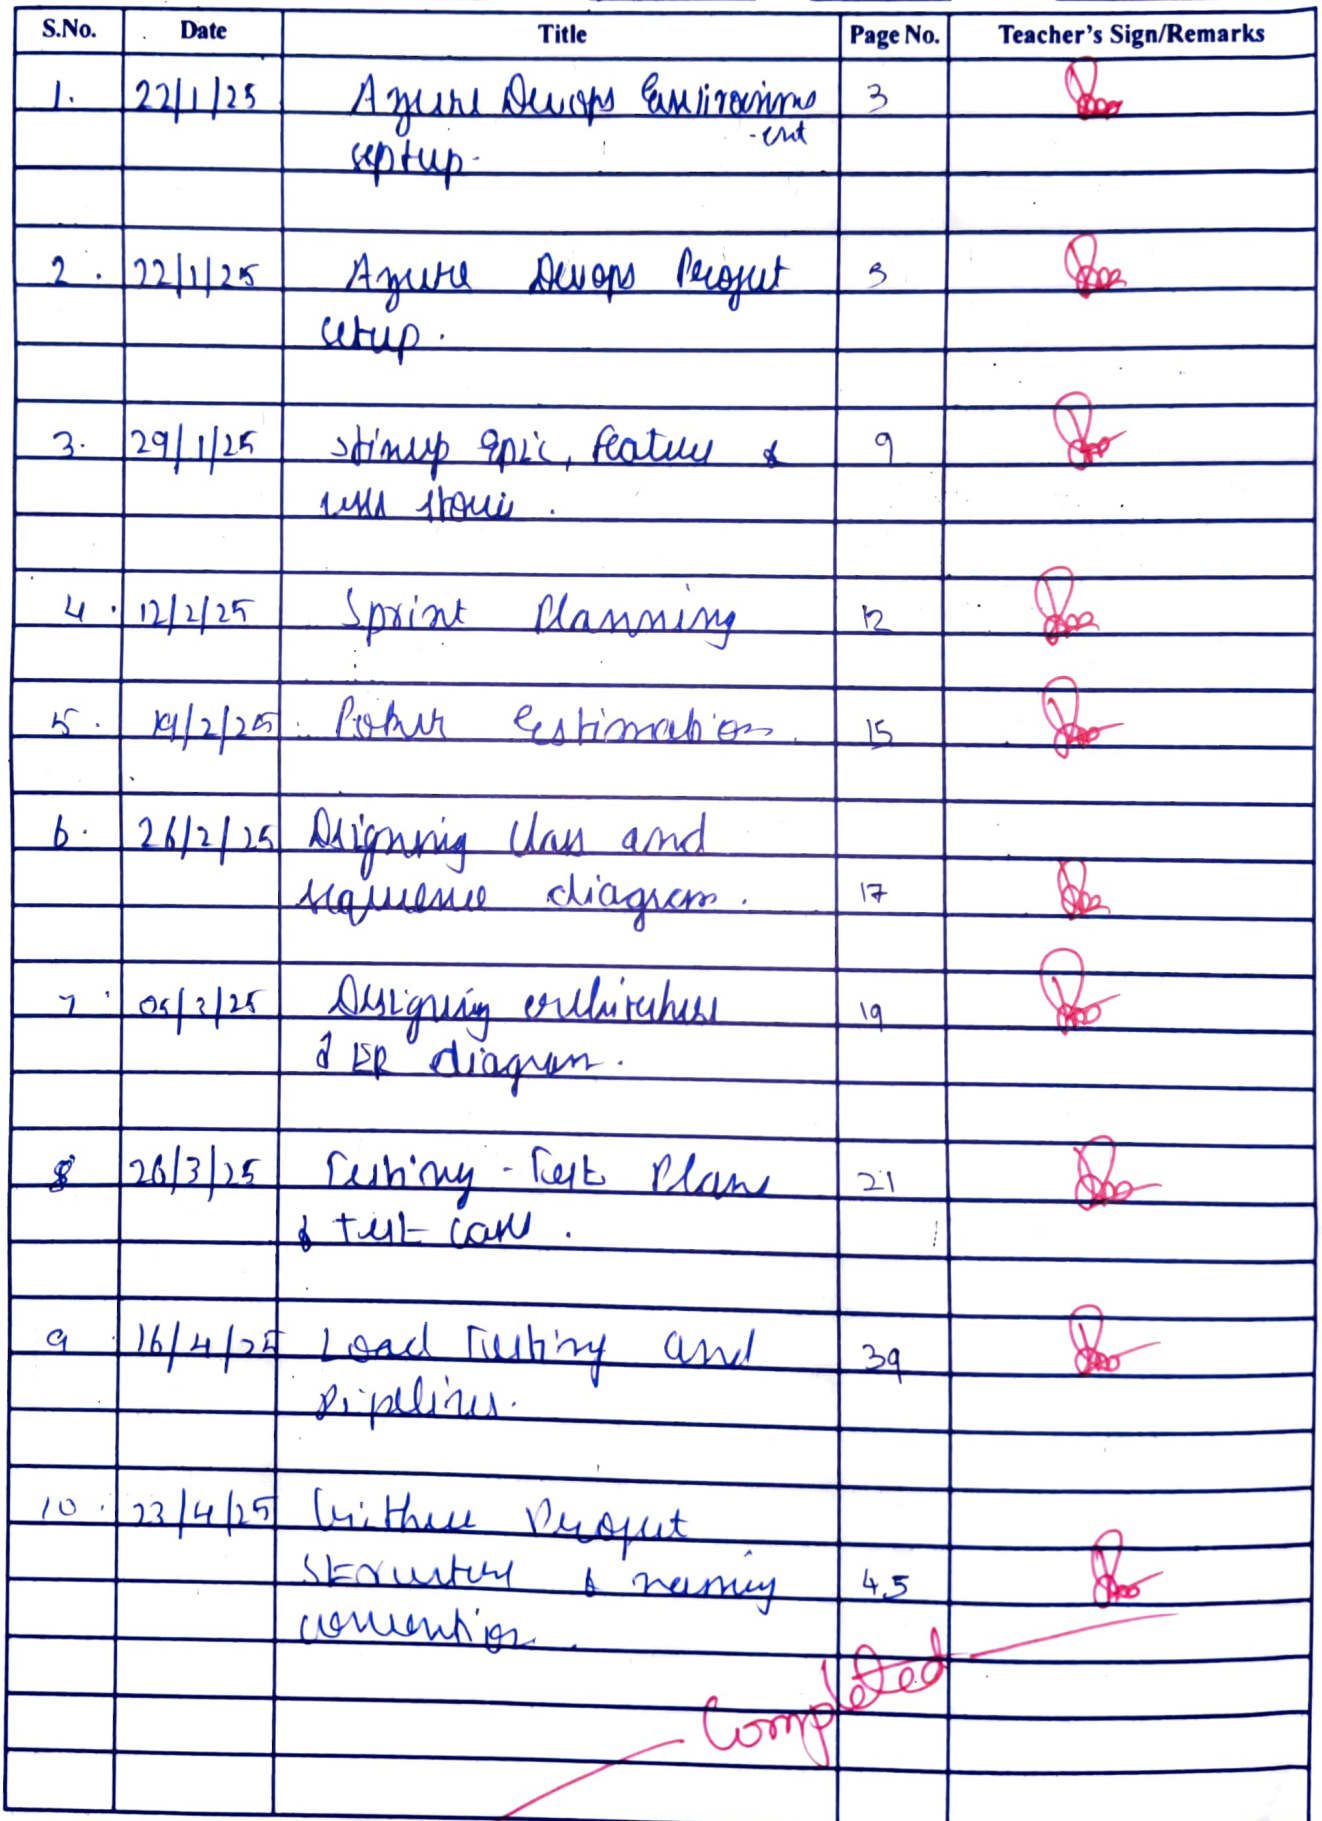 S.No. Date Title Page No. Teacher's Sign/Remarks
1. 22/1/25 Azure Devops Environm 3
-ent
septup.
2. 22/1/25 Azure Devops Project 3
setup.
3. 29/1/25 Epic, feature & 9
user storie.
4. 12/2/25 Sprint Planning 12
5. 19/2/25 Poker Estimation. 15
6. 26/2/25 Designing class and
sequence diagram. 17
7 05/3/25 Designing 19
& ER diagram.
8 26/3/25 Testing - Test Plans 21
& test cases.
9 16/4/25 Load Testing and 39
pipelines.
10. 23/4/25 Project
structure & naming 45
convention.
Completed